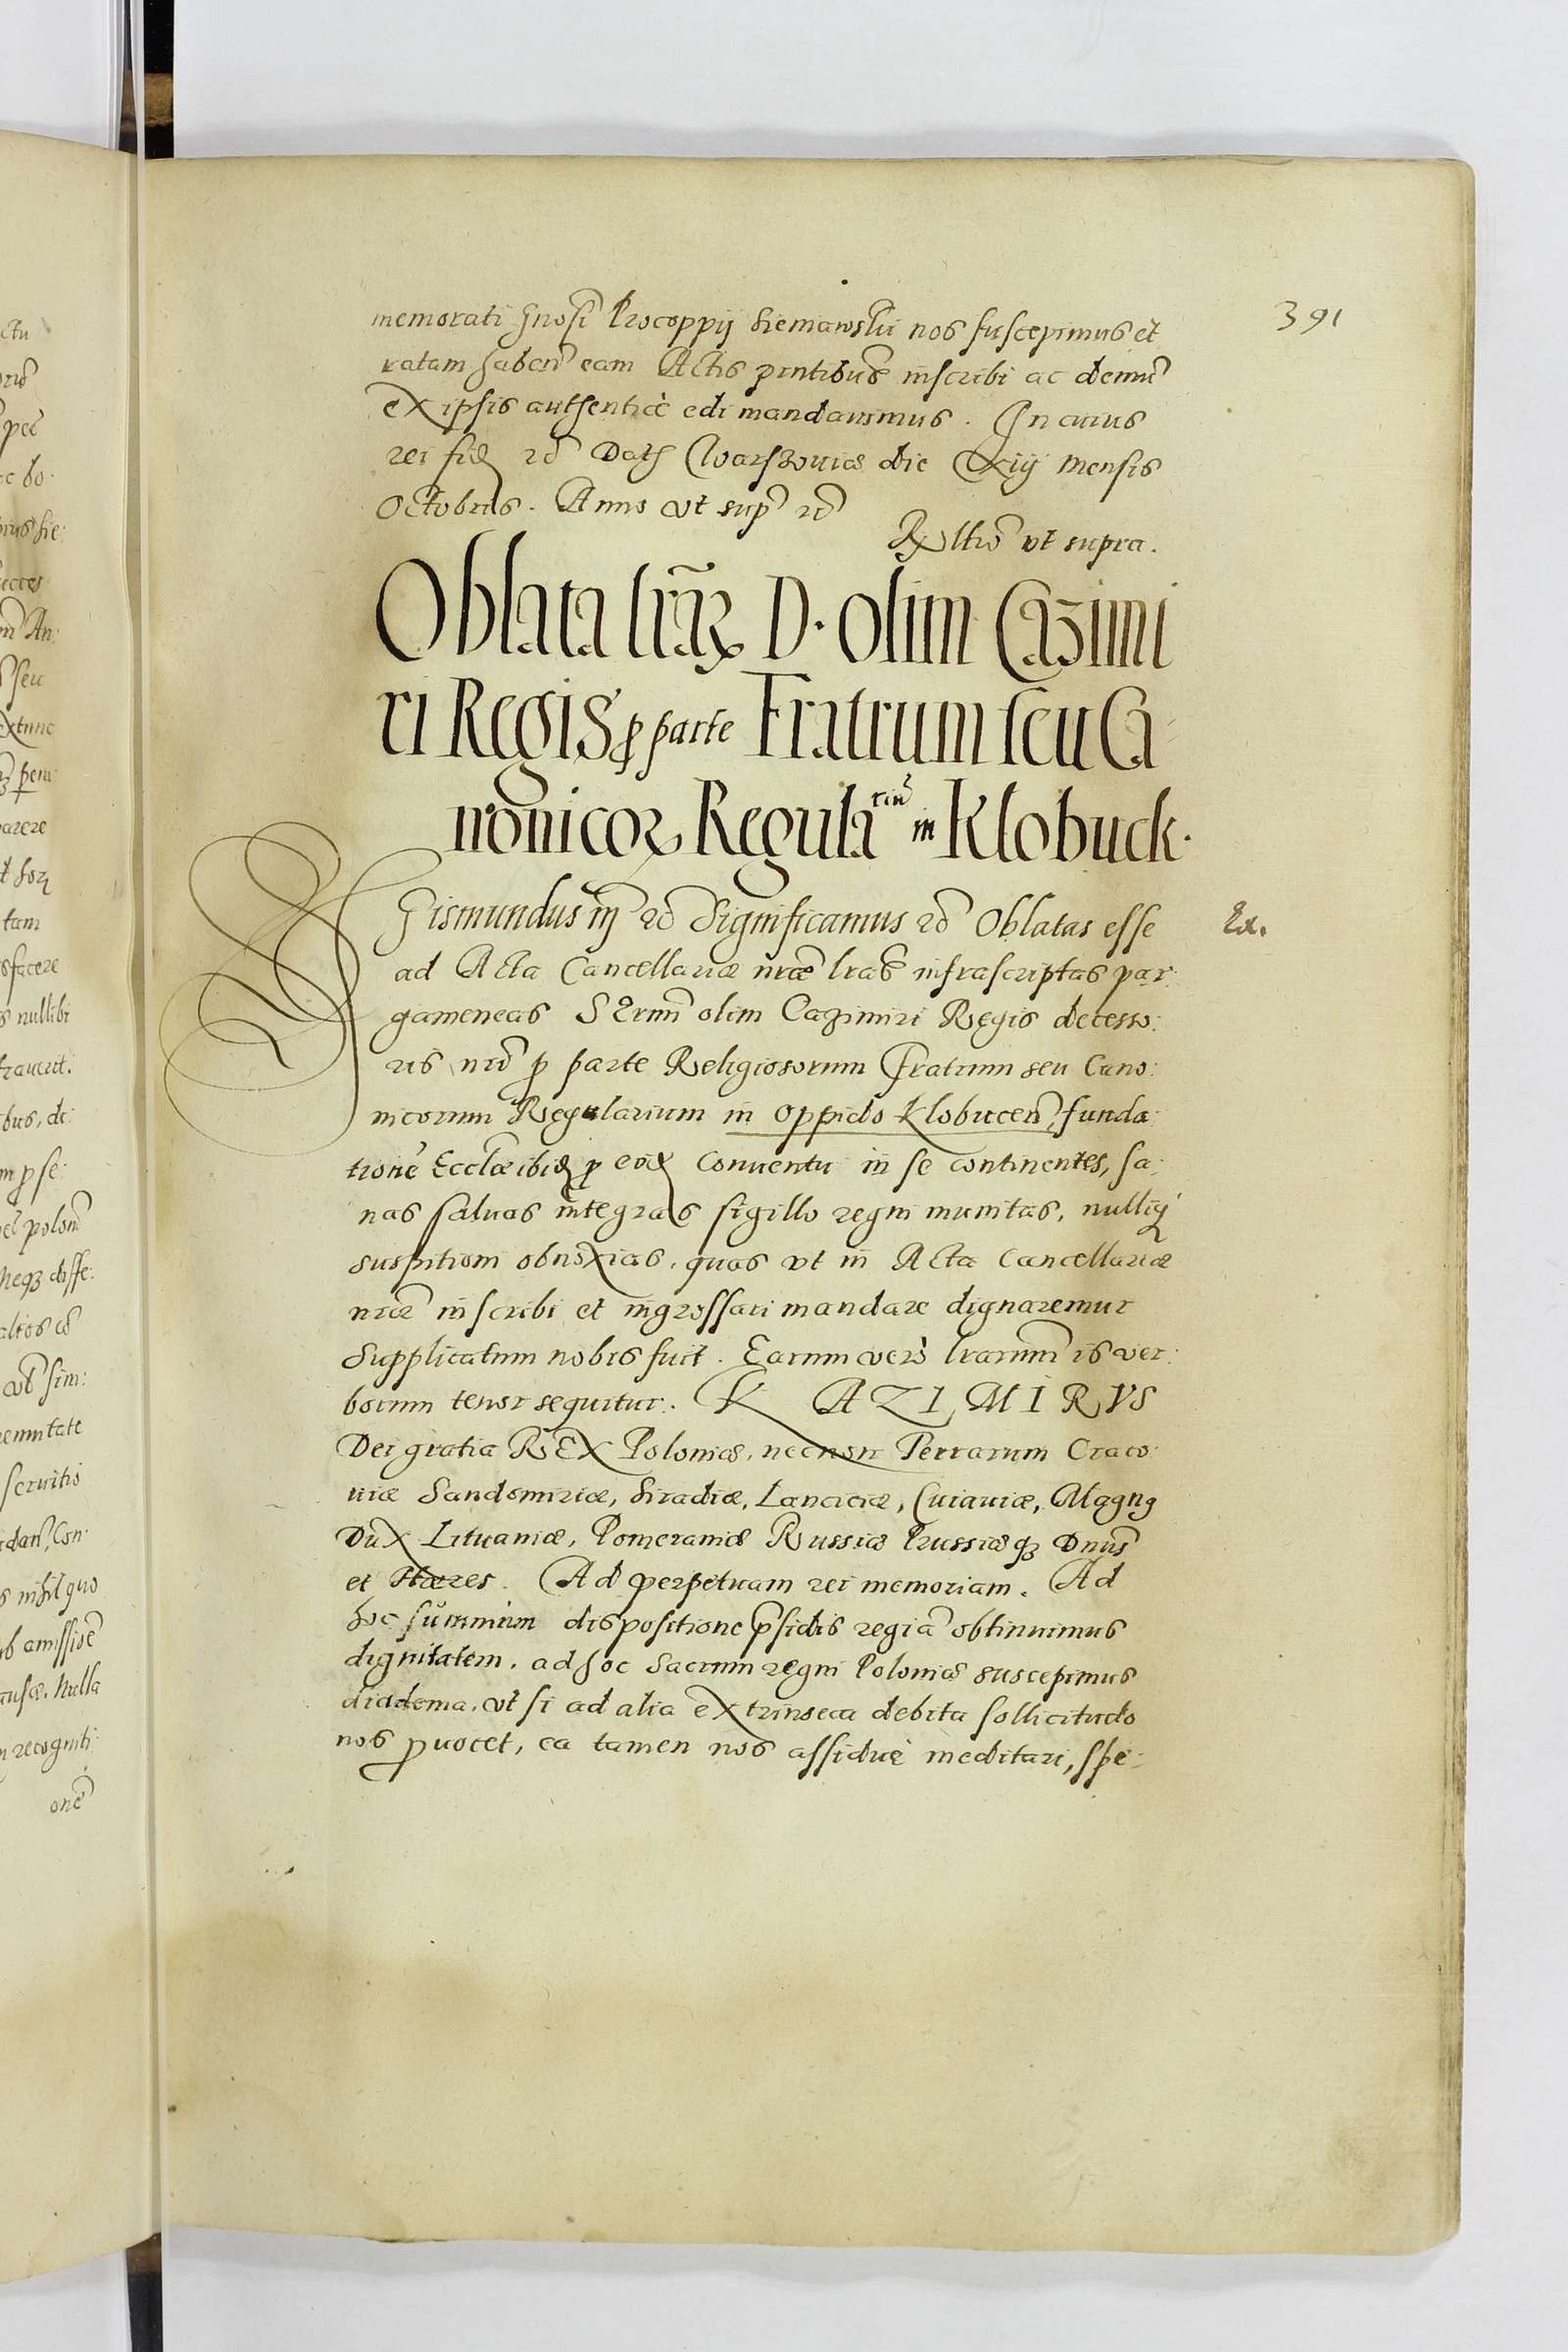 391
memorati gnosi Procoppij Siemawskii nos suscepimus et
ratam haben eam Actis pntibus inscribi ac demu
ex ipsis authenticè edi mandauimus. In cuius
rei fid Dat Warszouiæ die Xiij mensis
Octobris. Anno vt sup
Rltio vt supra.
Oblata lrar D. olim Cazimi
ri Regis p parte Fratrum seu Ca
nonicor Regulariu in Klobuck.
Sigismundus III Significamus Oblatas esse
Ex.
ad Acta Cancellariæ nræ lras infrascriptas par:
gameneas Sermi olim Cazimiri Regis decesso:
ris nri p parte Religiosorum Fratrum seu Cano:
nicorum Regularium in oppido Klobucen, funda:
tione Ecclæ ibid p eod Conuentu in se continentes, sa:
nas saluas integras sigillo regni munitas, nulliq
suspitioni obnoxias, quas vt in Acta Cancellariæ
nræ inscribi et ingrossari mandare dignaremur
Supplicatum nobis fuit. Earum verò lrarum is ver:
borum tenor sequitur. KAZIMIRVS
Dei gratia REX Poloniæ, necnon Terrarum Craco:
uiæ Sandomiriæ, Siradiæ, Lanciciæ, Cuiauiæ, Magng
Dux Lituaniæ, Pomeraniæ Russiæ Prussiæq Dnus
et Hæres. Ad perpetuam rei memoriam. Ad
hoc summum dispositione psidis regia obtinuimus
dignitatem, ad hoc Sacrum regni Poloniæ suscepimus
diadema, vt si ad alia extrinseca debita sollicitudo
nos puocet, ea tamen nos assiduè meditari, spe: